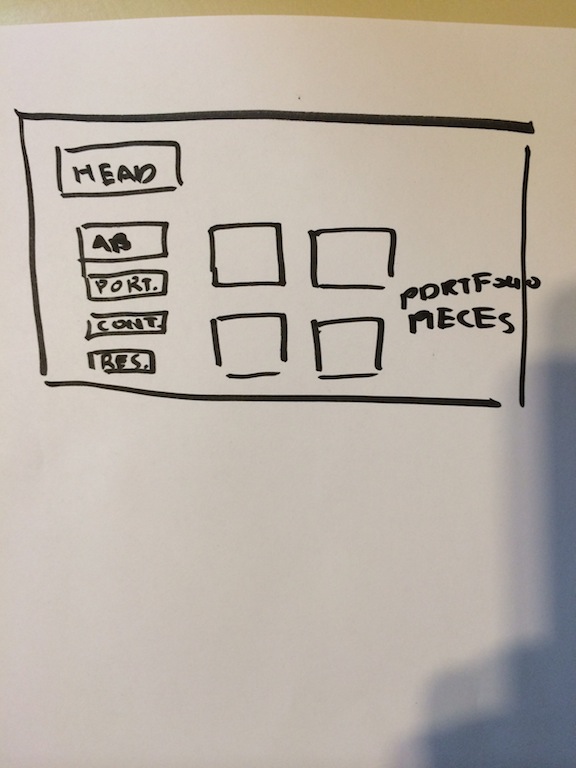 HEAD
AB
PORT.
CONT.
RES.
PORTFOLIO
PIECES